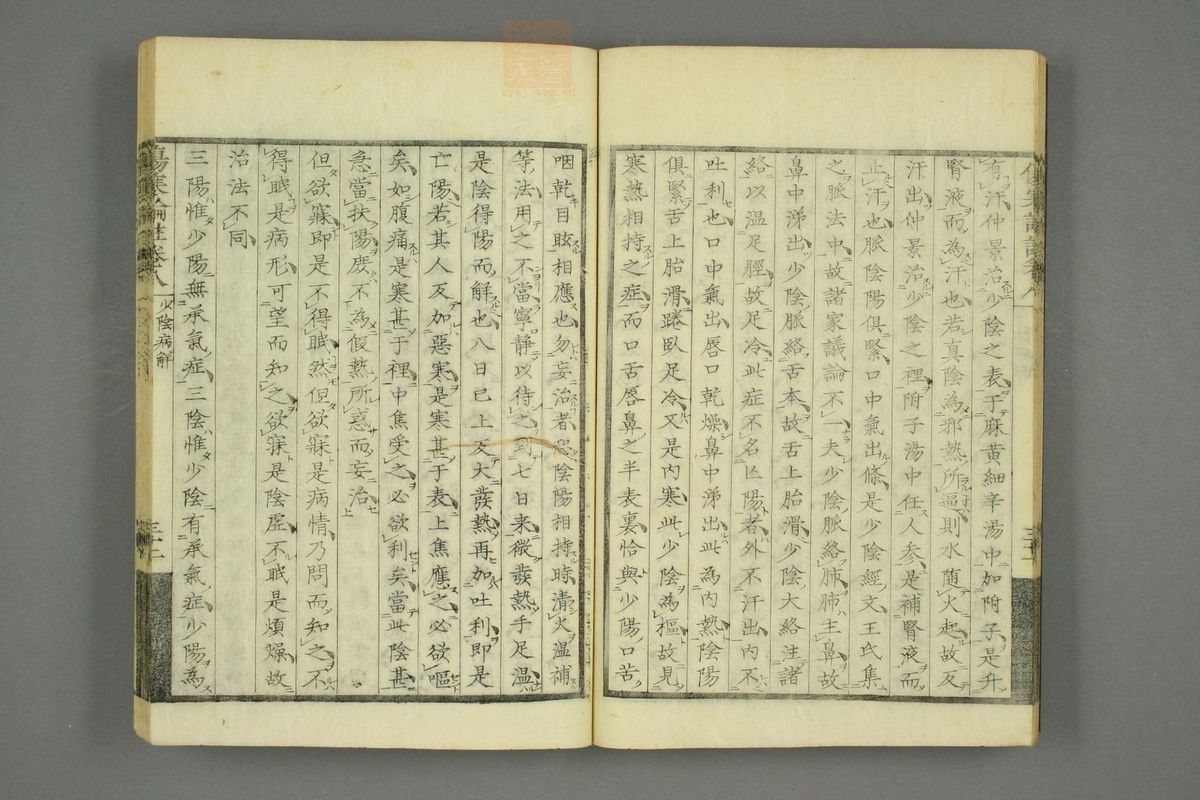 有汗仲景治少陰之表于麻黄細辛湯中加附子是升
腎液而為汗也若真陰為邪熱所逼則水隨火起故反
汗出仲景治少陰之裡附子湯中任人参是補腎液而
止汗也脈陰陽俱緊口中氣出條是少陰經文王氏集
之脈法中故諸家議論不一夫少陰脈絡肺肺主鼻故
鼻中涕出少陰脈絡舌本故舌上胎滑少陰大絡注諸
絡以温足脛故足冷此症不名亡陽者外不汗出内不
吐利也口中氣出唇口乾燥鼻中涕出此為内熱陰陽
俱緊舌上胎滑踡臥足冷又是内寒此少陰為樞故見
寒熱相持之症而口舌唇鼻之半表裏恰與少陽口苦
咽乾目眩相應也勿妄治者恐陰陽相持時清火温補
等法用之不當寧静以待之到七日来微發熱手足温
是陰得陽而解也八日已上反大發熱再加吐利即是
亡陽若其人反加惡寒是寒甚于表上焦應之必欲嘔
矣如腹痛是寒甚于裡中焦受之必欲利矣當此陰甚
急當扶陽庻不為假熱所惑而妄治
但欲寐即是不得眠然但欲寐是病情乃問而知之不
得眠是病形可望而知之欲寐是陰虛不眠是煩燥故
治法不同
三陽惟少陽無承氣症三陰惟少陰有承氣症少陽為
傷寒論註卷八
少陰病解
三十二